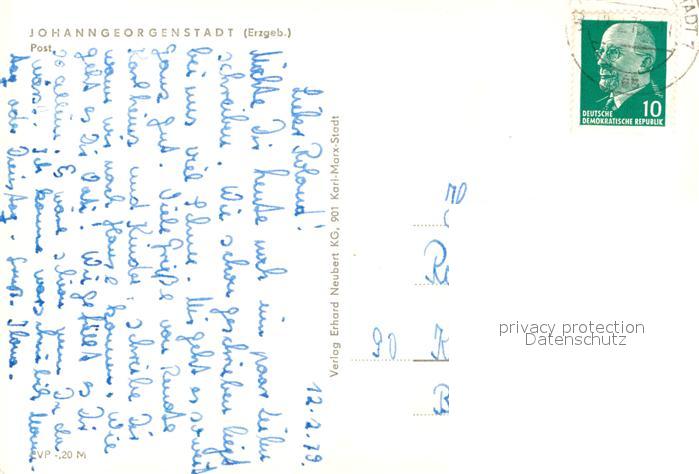 JOHANNGEORGENSTADT (Erzgeb.)
Post
12.2.79.
Lieber Roland!
Möchte Dir heute noch ein paar Zeilen
schreiben. Wie schon geschrieben liegt
bei uns viel Schnee. Mir geht es soweit
ganz gut. Viele Grüße von Renate
Karlheinz und Kinder. Schreibe Dir
wann wir nach Hause kommen. Wie
geht es Dir Vati. Wie gefällt es Dir
so allein. Es wäre schön wenn Du da
wärst. Ich komme wahrscheinlich Mon-
tag oder Dienstag. Gruß
EVP -,20 M
Verlag Erhard Neubert KG, 901 Karl-Marx-Stadt
DEUTSCHE
DEMOKRATISCHE REPUBLIK
10
STADT 1
90 K
R
privacy protection
Datenschutz